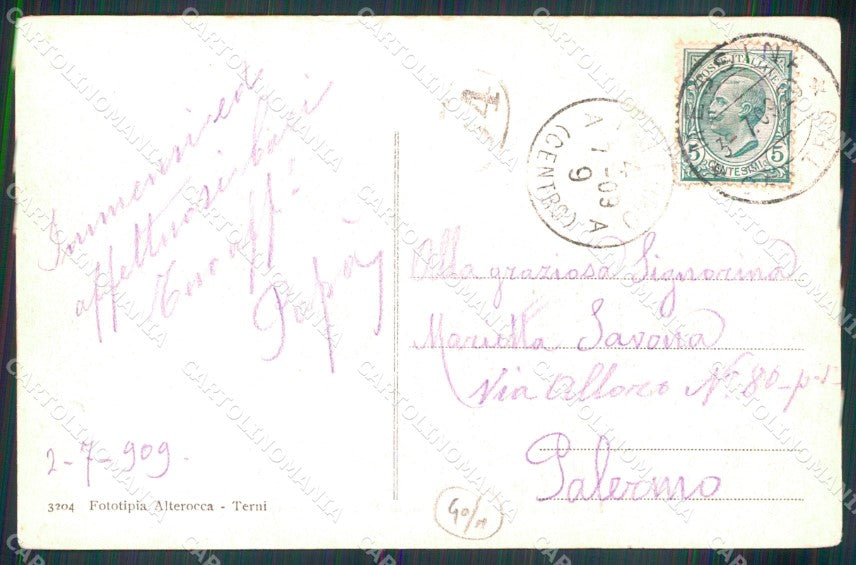 Immensi ed
affettuosi baci
tuo aff.
Papà
2-7-909.
3204 Fototipia Alterocca - Terni
4
POSTE ITALIANE
5 5
CENTESIMI
4
A 7 -09 A
9
(CENTRO)
Alla graziosa Signorina
Marietta Savona
Via Alloro No 80-p-
Palermo
40/M
CARTOLINOMANIA